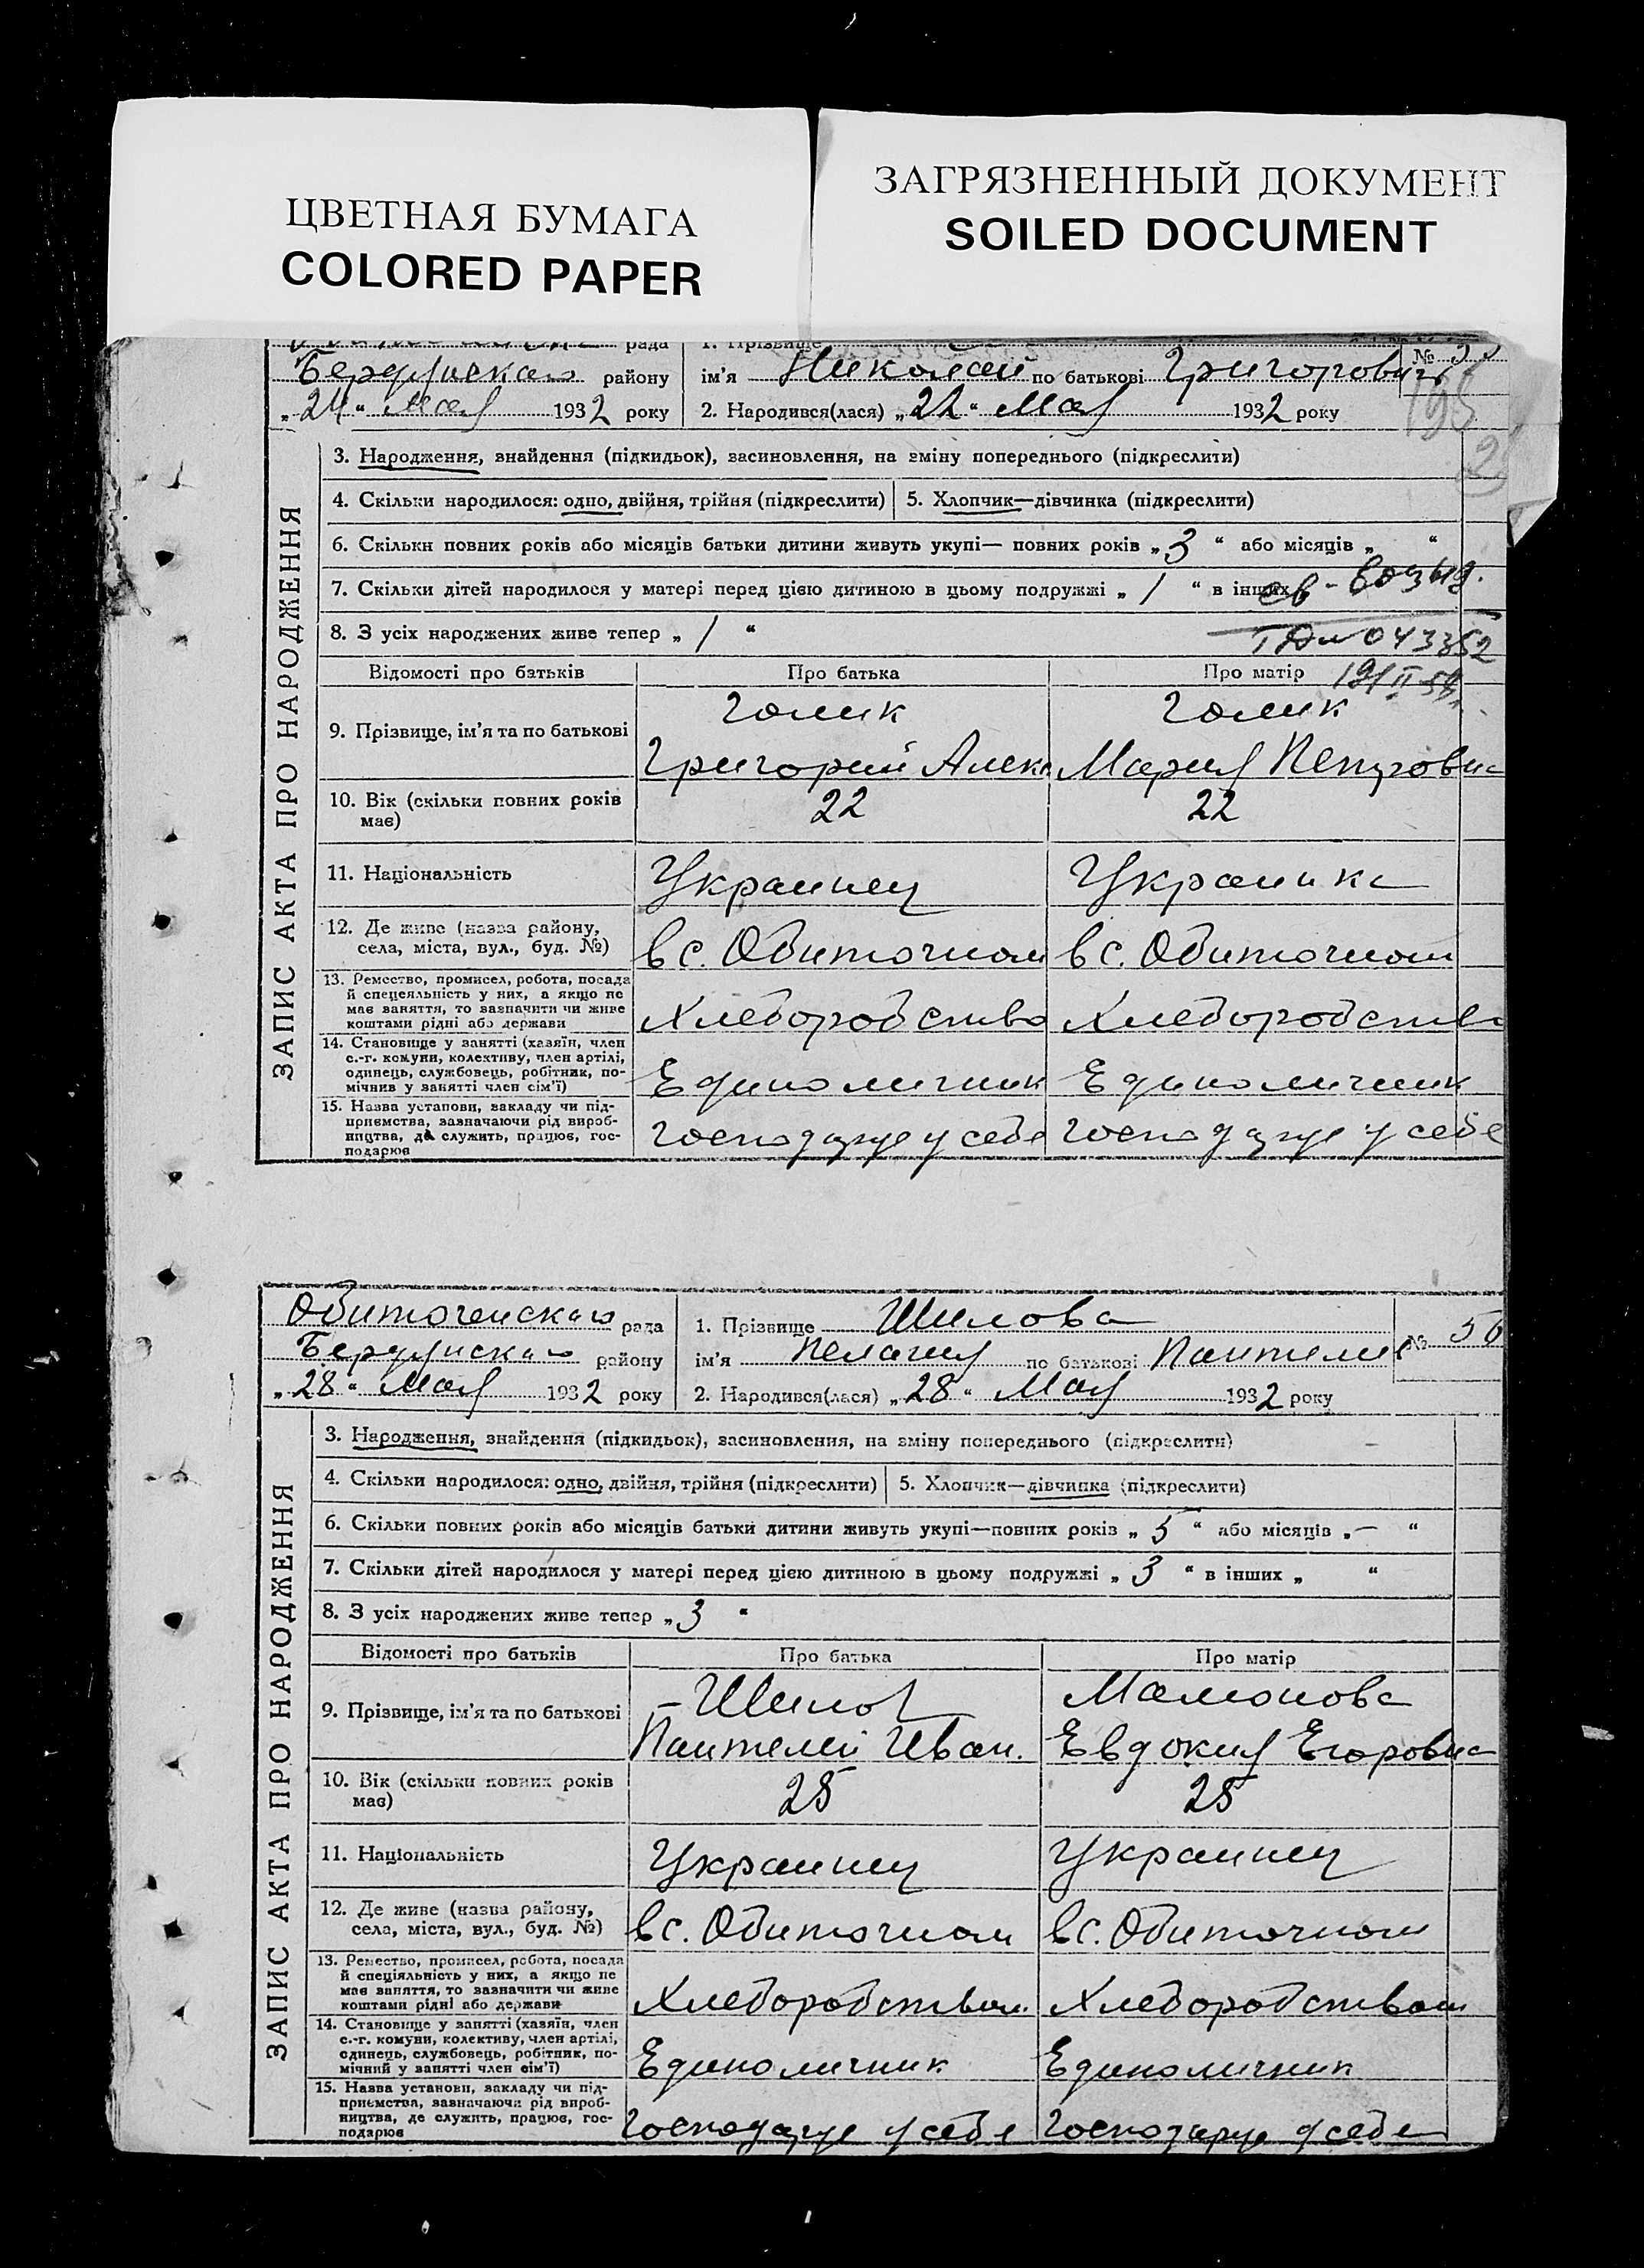 ЦВЕТНАЯ БУМАГА
COLORED PAPER
ЗАГРЯЗНЕННЫЙ ДОКУМЕНТ
SOILED DOCUMENT
рада 1. Прізвище
Бердянскаго району ім'я Николай по батькові Григорович №
„24“ Мая 1932 року 2. Народився(лася) „22“ Мая 1932 року
195
2
ЗАПИС АКТА ПРО НАРОДЖЕННЯ
3. Народження, знайдення (підкидьок), засиновлення, на зміну попереднього (підкреслити)
4. Скільки народилося: одно, двійня, трійня (підкреслити) 5. Хлопчик—дівчинка (підкреслити)
6. Скільки повних років або місяців батьки дитини живуть укупі— повних років „3“ або місяців „ “
7. Скільки дітей народилося у матері перед цією дитиною в цьому подружжі „1“ в інших
св-во
8. З усіх народжених живе тепер „1“
043352
Відомості про батьків Про батька Про матір
9. Прізвище, ім'я та по батькові
Голик Голик
Григорий Алекс Мария Петровна
10. Вік (скільки повних років має) 22 22
11. Національність Украинец Украинка
12. Де живе (назва району, села, міста, вул., буд. №) в с. Обиточном в с. Обиточном
13. Ремество, промисел, робота, посада
й спецеяльність у них, а якщо не
має заняття, то зазначити чи живе
коштами рідні або держави
Хлеборобство Хлеборобство
14. Становище у занятті (хазяїн, член
с.-г. комуни, колективу, член артілі,
одинець, службовець, робітник, по-
мічнив у занятті член сім'ї)
Единоличник Единоличник
15. Назва установи, закладу чи під-
приємства, зазначаючи рід вироб-
ництва, де служить, працює, гос-
подарює
Господарує у себе Господарує у себе
Обиточенскаго рада 1. Прізвище Шилова
Бердянскаго району ім'я Пелагия по батькові Пантелие № 56
„28“ Мая 1932 року 2. Народився(лася) „28“ Мая 1932 року
ЗАПИС АКТА ПРО НАРОДЖЕННЯ
3. Народження, знайдення (підкидьок), засиновлення, на зміну попереднього (підкреслити)
4. Скільки народилося: одно, двійня, трійня (підкреслити) 5. Хлопчик—дівчинка (підкреслити)
6. Скільки повних років або місяців батьки дитини живуть укупі—повних років „5“ або місяців „—“
7. Скільки дітей народилося у матері перед цією дитиною в цьому подружжі „3“ в інших „ “
8. З усіх народжених живе тепер „3“
Відомості про батьків Про батька Про матір
9. Прізвище, ім'я та по батькові
Шилов Мамонова
Пантелей Иван. Евдокия Егоровна
10. Вік (скільки повних років має) 25 25
11. Національність Украинец Украинец
12. Де живе (назва району, села, міста, вул., буд. №) в с. Обиточном в с. Обиточном
13. Ремество, промисел, робота, посада
й спеціяльність у них, а якщо не
має заняття, то зазначити чи живе
коштами рідні або держави
Хлеборобством Хлеборобством
14. Становище у занятті (хазяїн, член
с.-г. комуни, колективу, член артілі,
одинець, службовець, робітник, по-
мічний у занятті член сім'ї)
Единоличник Единоличник
15. Назва установи, закладу чи під-
приємства, зазначаючи рід вироб-
ництва, де служить, працює, гос-
подарює
Господарує у себе Господарує у себе